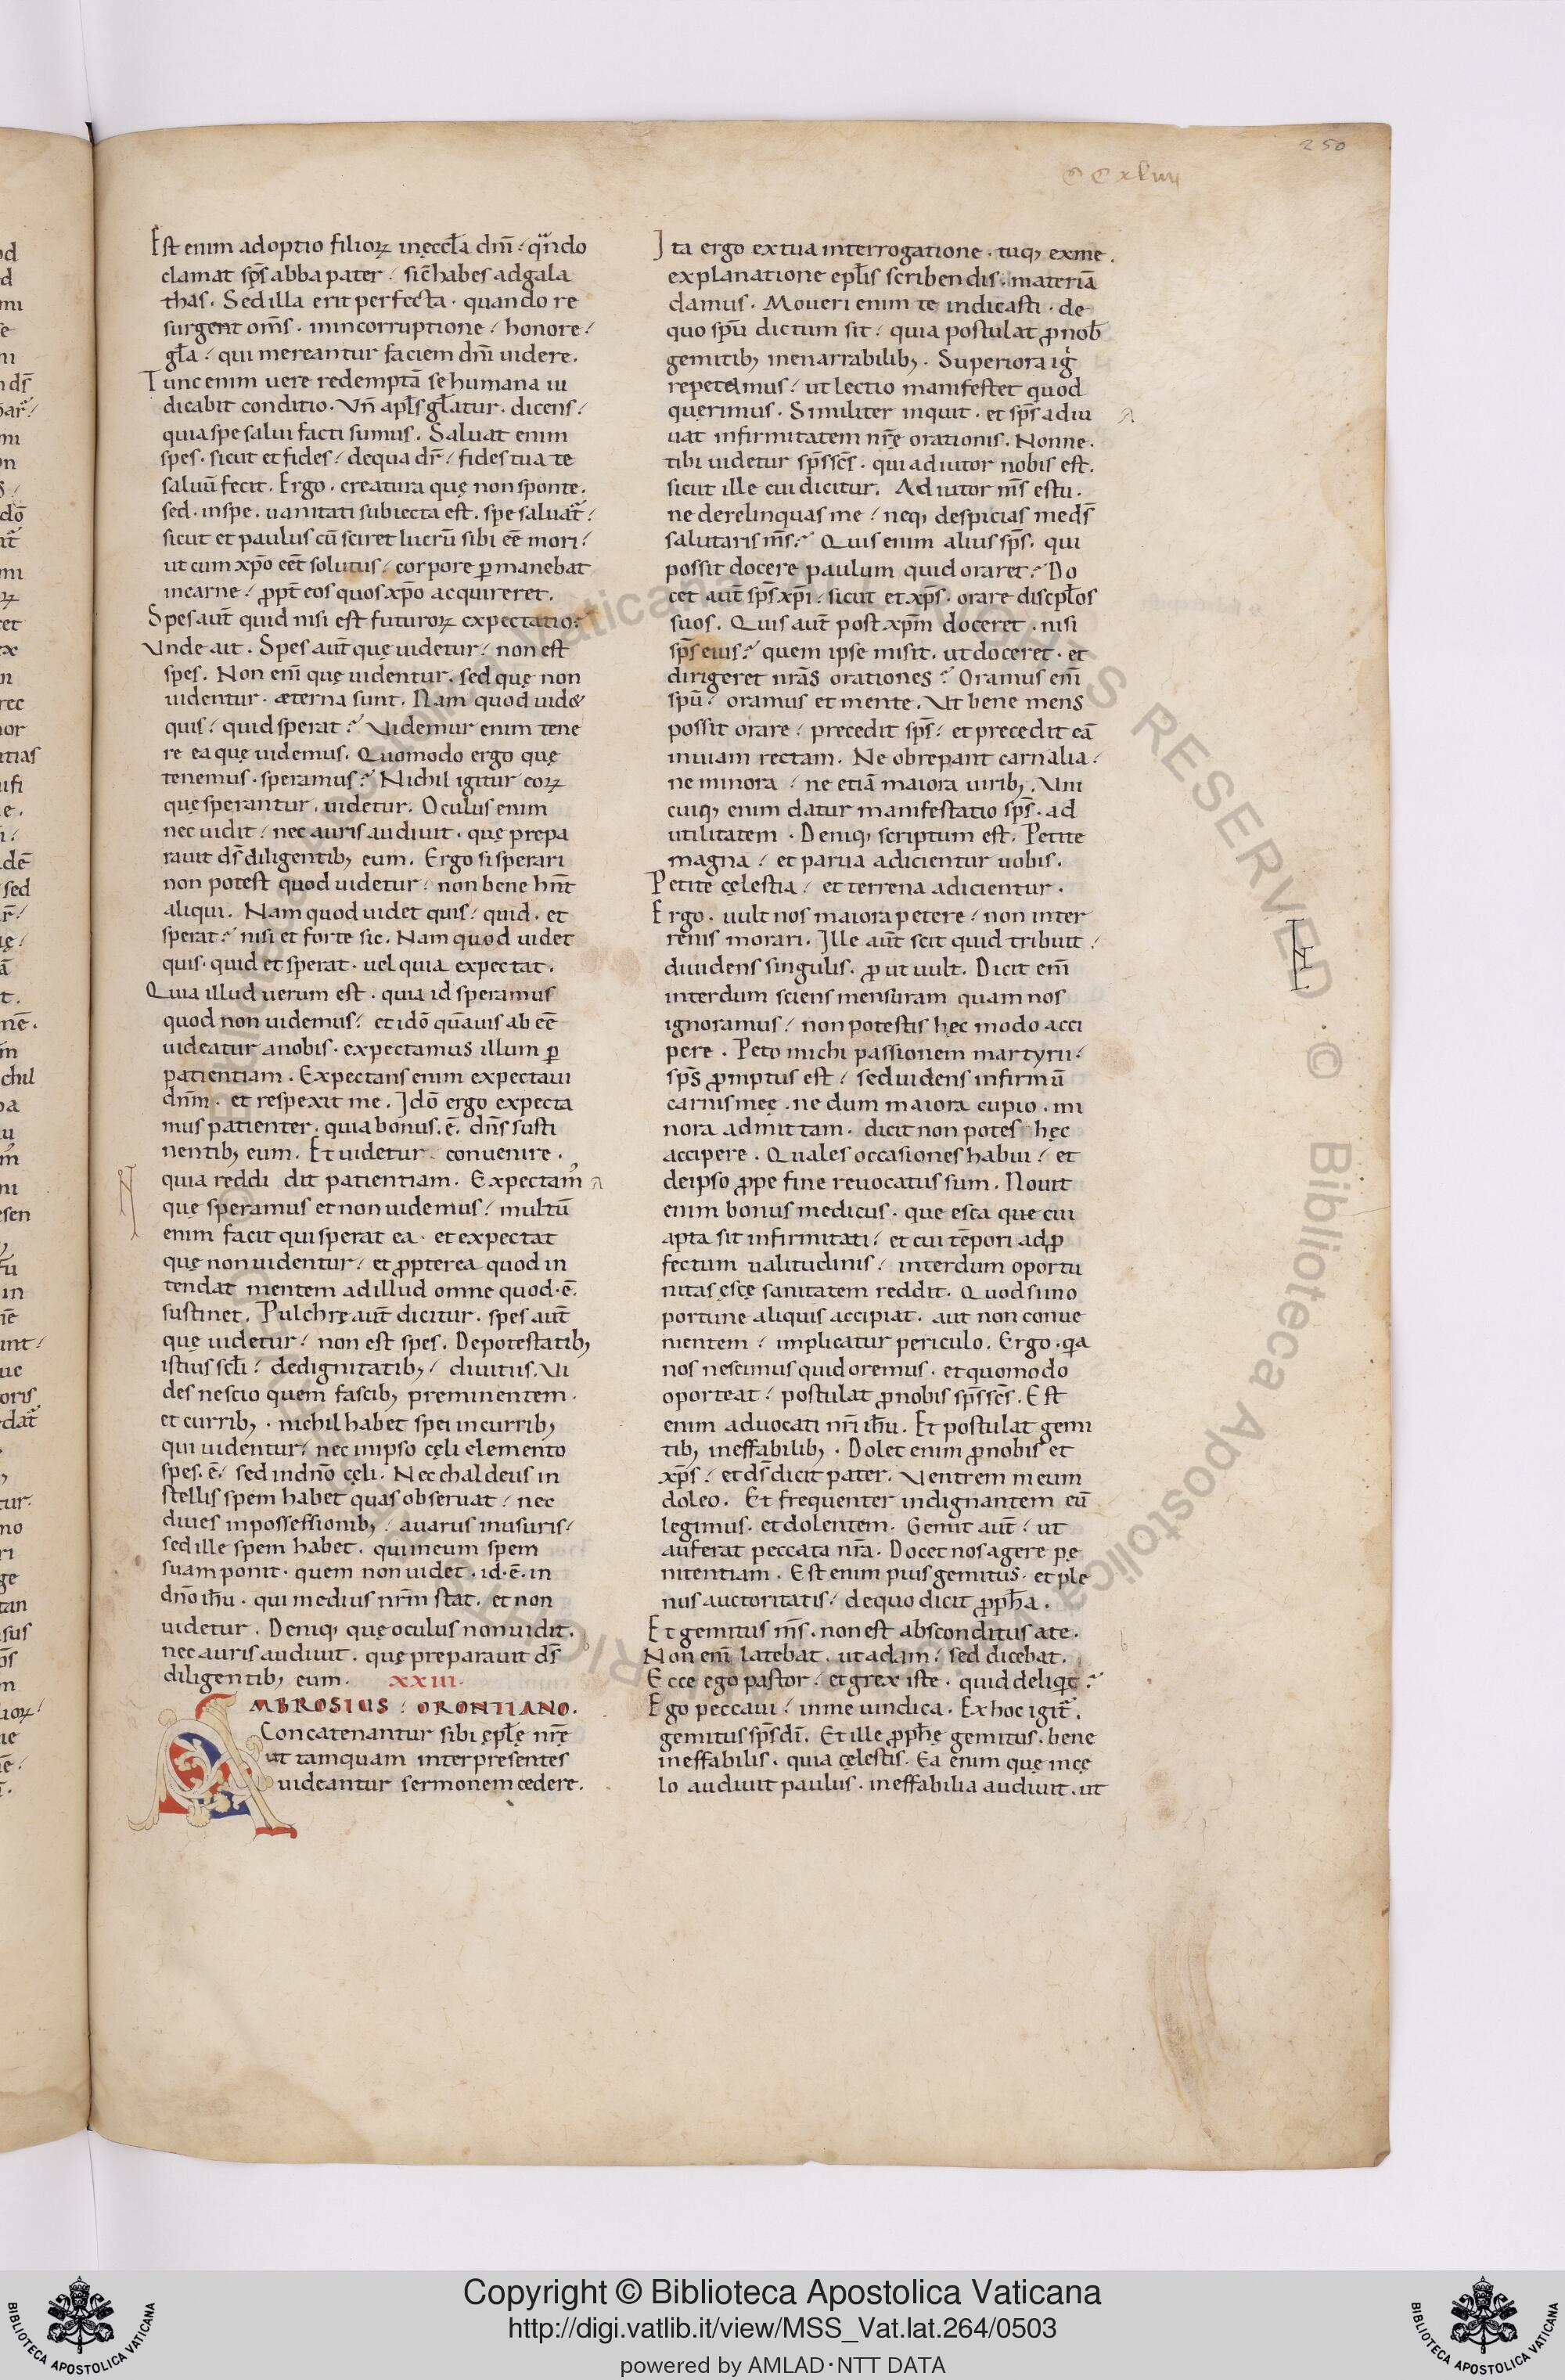 250
CCxlviiij
Est enim adoptio filioꝝ in ęccła dnī. qn̄do
clamat sp̄s abba pater. sic̄ habes ad gala
thas. Sed illa erit perfecta. quando re
surgent om̄s. in incorruptione. honore.
gl̄a. qui mereantur faciem dnī uidere.
Tunc enim uere redemptā se humana iu
dicabit conditio. Vn̄ apl̄s gl̄atur. dicens.
quia spe salui facti sumus. Saluat enim
spes. sicut et fides. de qua dr̄. fides tua te
saluū fecit. Ergo. creatura quę non sponte.
sed. in spe. uanitati subiecta est. spe saluat̄.
sicut et paulus cū sciret lucrū sibi eē mori.
ut cum xp̄o eēt solutus. corpore ꝑmanebat
in carne. ꝓpt̄ eos quos xp̄o acquireret.
Spes aut̄ quid nisi est futuroꝝ expectatio?
Vnde ait. Spes aut̄ quę uidetur. non est
spes. Non eni̅ quę uidentur. sed quę non
uidentur. æterna sunt. Nam quod uid&
quis. quid sperat? Videmur enim tene
re ea quę uidemus. Quomodo ergo quę
tenemus. speramus? Nichil igitur eoꝝ
quę sperantur. uidetur. Oculus enim
nec uidit. nec auris audiuit. quę prepa
rauit ds̄ diligentibꝫ eum. Ergo si sperari
non potest quod uidetur. non bene hn̄t
aliqui. Nam quod uidet quis. quid. et
sperat? nisi et forte sic. Nam quod uidet
quis. quid et sperat. uel quia expectat.
Quia illud uerum est. quia id speramus
quod non uidemus. et idō quāuis abeē
uideatur a nobis. expectamus illum ꝑ
patientiam. Expectans enim expectaui
dnm̄. et respexit me. Idō ergo expecta
mus patienter. quia bonus. ē. dn̄s susti
nentibꝫ eum. Et uidetur. conuenire.
quia reddi dit patientiam. Expectam᷒
quę speramus et non uidemus. multū
enim facit qui sperat ea. et expectat
quę non uidentur. et ꝓpterea quod in
tendat mentem ad illud omne quod. ē.
sustinet. Pulchrę aut̄ dicitur. spes aut̄
quę uidetur. non est spes. De potestatibꝫ
istius scl̄i. de dignitatibꝫ. diuitiis. Vi
des nescio quem fascibꝫ preminentem.
et curribꝫ. nichil habet spei in curribꝫ
qui uidentur. nec in ipso cęli elemento
spes. ē. sed in dn̄o cęli. Nec chaldeus in
stellis spem habet quas obseruat. nec
diues in possessionibꝫ. auarus in usuris.
sed ille spem habet. qui in eum spem
suam ponit. quem non uidet. id. ē. in
dn̄o ihū. qui medius nrm̄ stat. et non
uidetur. Deniqꝫ quę oculus non uidit.
nec auris audiuit. quę preparauit ds̄
diligentibꝫ eum. XXIII.
AMBROSIUS. ORONTIANO.
Concatenantur sibi ępl̄ę nrę̄
ut tamquam inter presentes
uideantur sermonem cedere.
Ita ergo ex tua interrogatione. tuqꝫ ex me.
explanatione epl̄is scribendis. materiā
damus. Moueri enim te indicasti. de
quo spū dictum sit. quia postulat ꝓ nob̄
gemitibꝫ inenarrabilibꝫ. Superiora ig̊
repetamus. ut lectio manifestet quod
quęrimus. Similiter inquit. et sp̄s adiu
uat infirmitatem nrę̄ orationis. Nonne.
tibi uidetur sp̄s sc̄s. qui adiutor nobis est.
sicut ille cui dicitur. Adiutor ms̄ es tu.
ne derelinquas me. neqꝫ despicias me ds̄
salutaris ms̄? Quis enim alius sp̄s. qui
possit docere paulum quid oraret? Do
cet aut̄ sp̄s xp̄i. sicut et xp̄s. orare discpl̄os
suos. Quis aut̄ post xp̄m doceret. nisi
sp̄s eius? quem ipse misit. ut doceret. et
dirigeret nrās orationes? Oramus eni̅
spū. oramus et mente. Ut bene mens
possit orare. precedit sp̄s. et precedit eā
in uiam rectam. Ne obrepant carnalia.
ne minora. ne etiā maiora uiribꝫ. Vni
cuiqꝫ enim datur manifestatio sp̄s. ad
utilitatem. Deniqꝫ scriptum est. Petite
magna. et parua adicientur uobis.
Petite cęlestia. et terrena adicientur.
Ergo. uult nos maiora petere. non in ter
renis morari. Ille aut̄ scit quid tribuit.
diuidens singulis. ꝓut uult. Dicit eni̅
interdum sciens mensuram quam nos
ignoramus. non potestis hęc modo acci
pere. Peto michi passionem martyrii.
sp̄s ꝓmptus est. sed uidens infirmū
carnis meę. ne dum maiora cupio. mi
nora admittam. dicit non potes hęc
accipere. Quales occasiones habui. et
de ipso ꝓpe fine reuocatus sum. Nouit
enim bonus medicus. que esca que cui
apta sit infirmitati. et cui tēpori ad ꝓ
fectum ualitudinis. interdum oportu
nitas ęscę sanitatem reddit. Quod si ino
portune aliquis accipiat. aut non conue
nientem. implicatur periculo. Ergo. qa
nos nescimus quid oremus. et quomodo
oporteat. postulat ꝓ nobis sp̄s sc̄s. Est
enim aduocati nri̅ ihū. Et postulat gemi
tibꝫ ineffabilibꝫ. Dolet enim ꝓ nobis et
xp̄s. et ds̄ dicit pater. Ventrem meum
doleo. Et frequenter indignantem eū
legimus. et dolentem. Gemit aut̄. ut
auferat peccata nrā. Docet nos agere pę
nitentiam. Est enim pius gemitus. et ple
nus auctoritatis. de quo dicit ꝓph̄a.
Et gemitus ms̄. non est absconditus a te.
Non eni̅ latebat. ut adam. sed dicebat.
Ecce ego pastor. et grex iste. quid deliqit?
Ego peccaui. in me uindica. Ex hoc igit̄.
gemitus sp̄s dī. Et ille ꝓph̄ę gemitus. bene
ineffabilis. quia cęlestis. Ea enim quę in cę
lo audiuit paulus. ineffabilia audiuit. ut
Copyright © Biblioteca Apostolica Vaticana
http://digi.vatlib.it/view/MSS_Vat.lat.264/0503
powered by AMLAD·NTT DATA
BIBLIOTECA APOSTOLICA VATICANA
BIBLIOTECA APOSTOLICA VATICANA